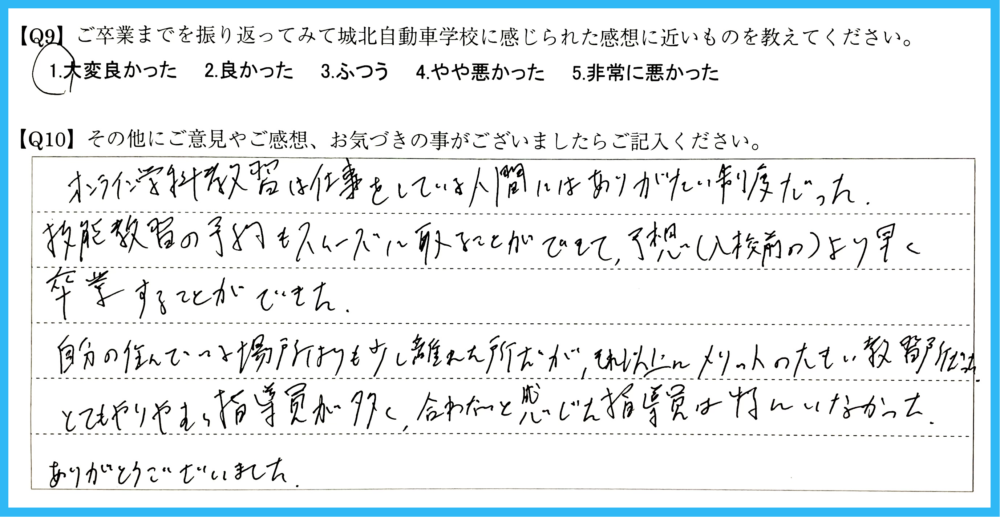 【Q9】ご卒業までを振り返ってみて城北自動車学校に感じられた感想に近いものを教えてください。
1.大変良かった 2.良かった 3.ふつう 4.やや悪かった 5.非常に悪かった
【Q10】その他にご意見やご感想、お気づきの事がございましたらご記入ください。
オンライン学科教習は仕事をしている人間にはありがたい制度だった.
技能教習の予約もスムーズに取ることができて,予想(入校前の)より早く
卒業することができた.
自分の住んでいる場所よりも少し離れた所だが,それ以上にメリットの大きい教習所だった.
とてもやりやすい指導員が多く,合わないと感じた指導員は特にいなかった.
ありがとうございました.